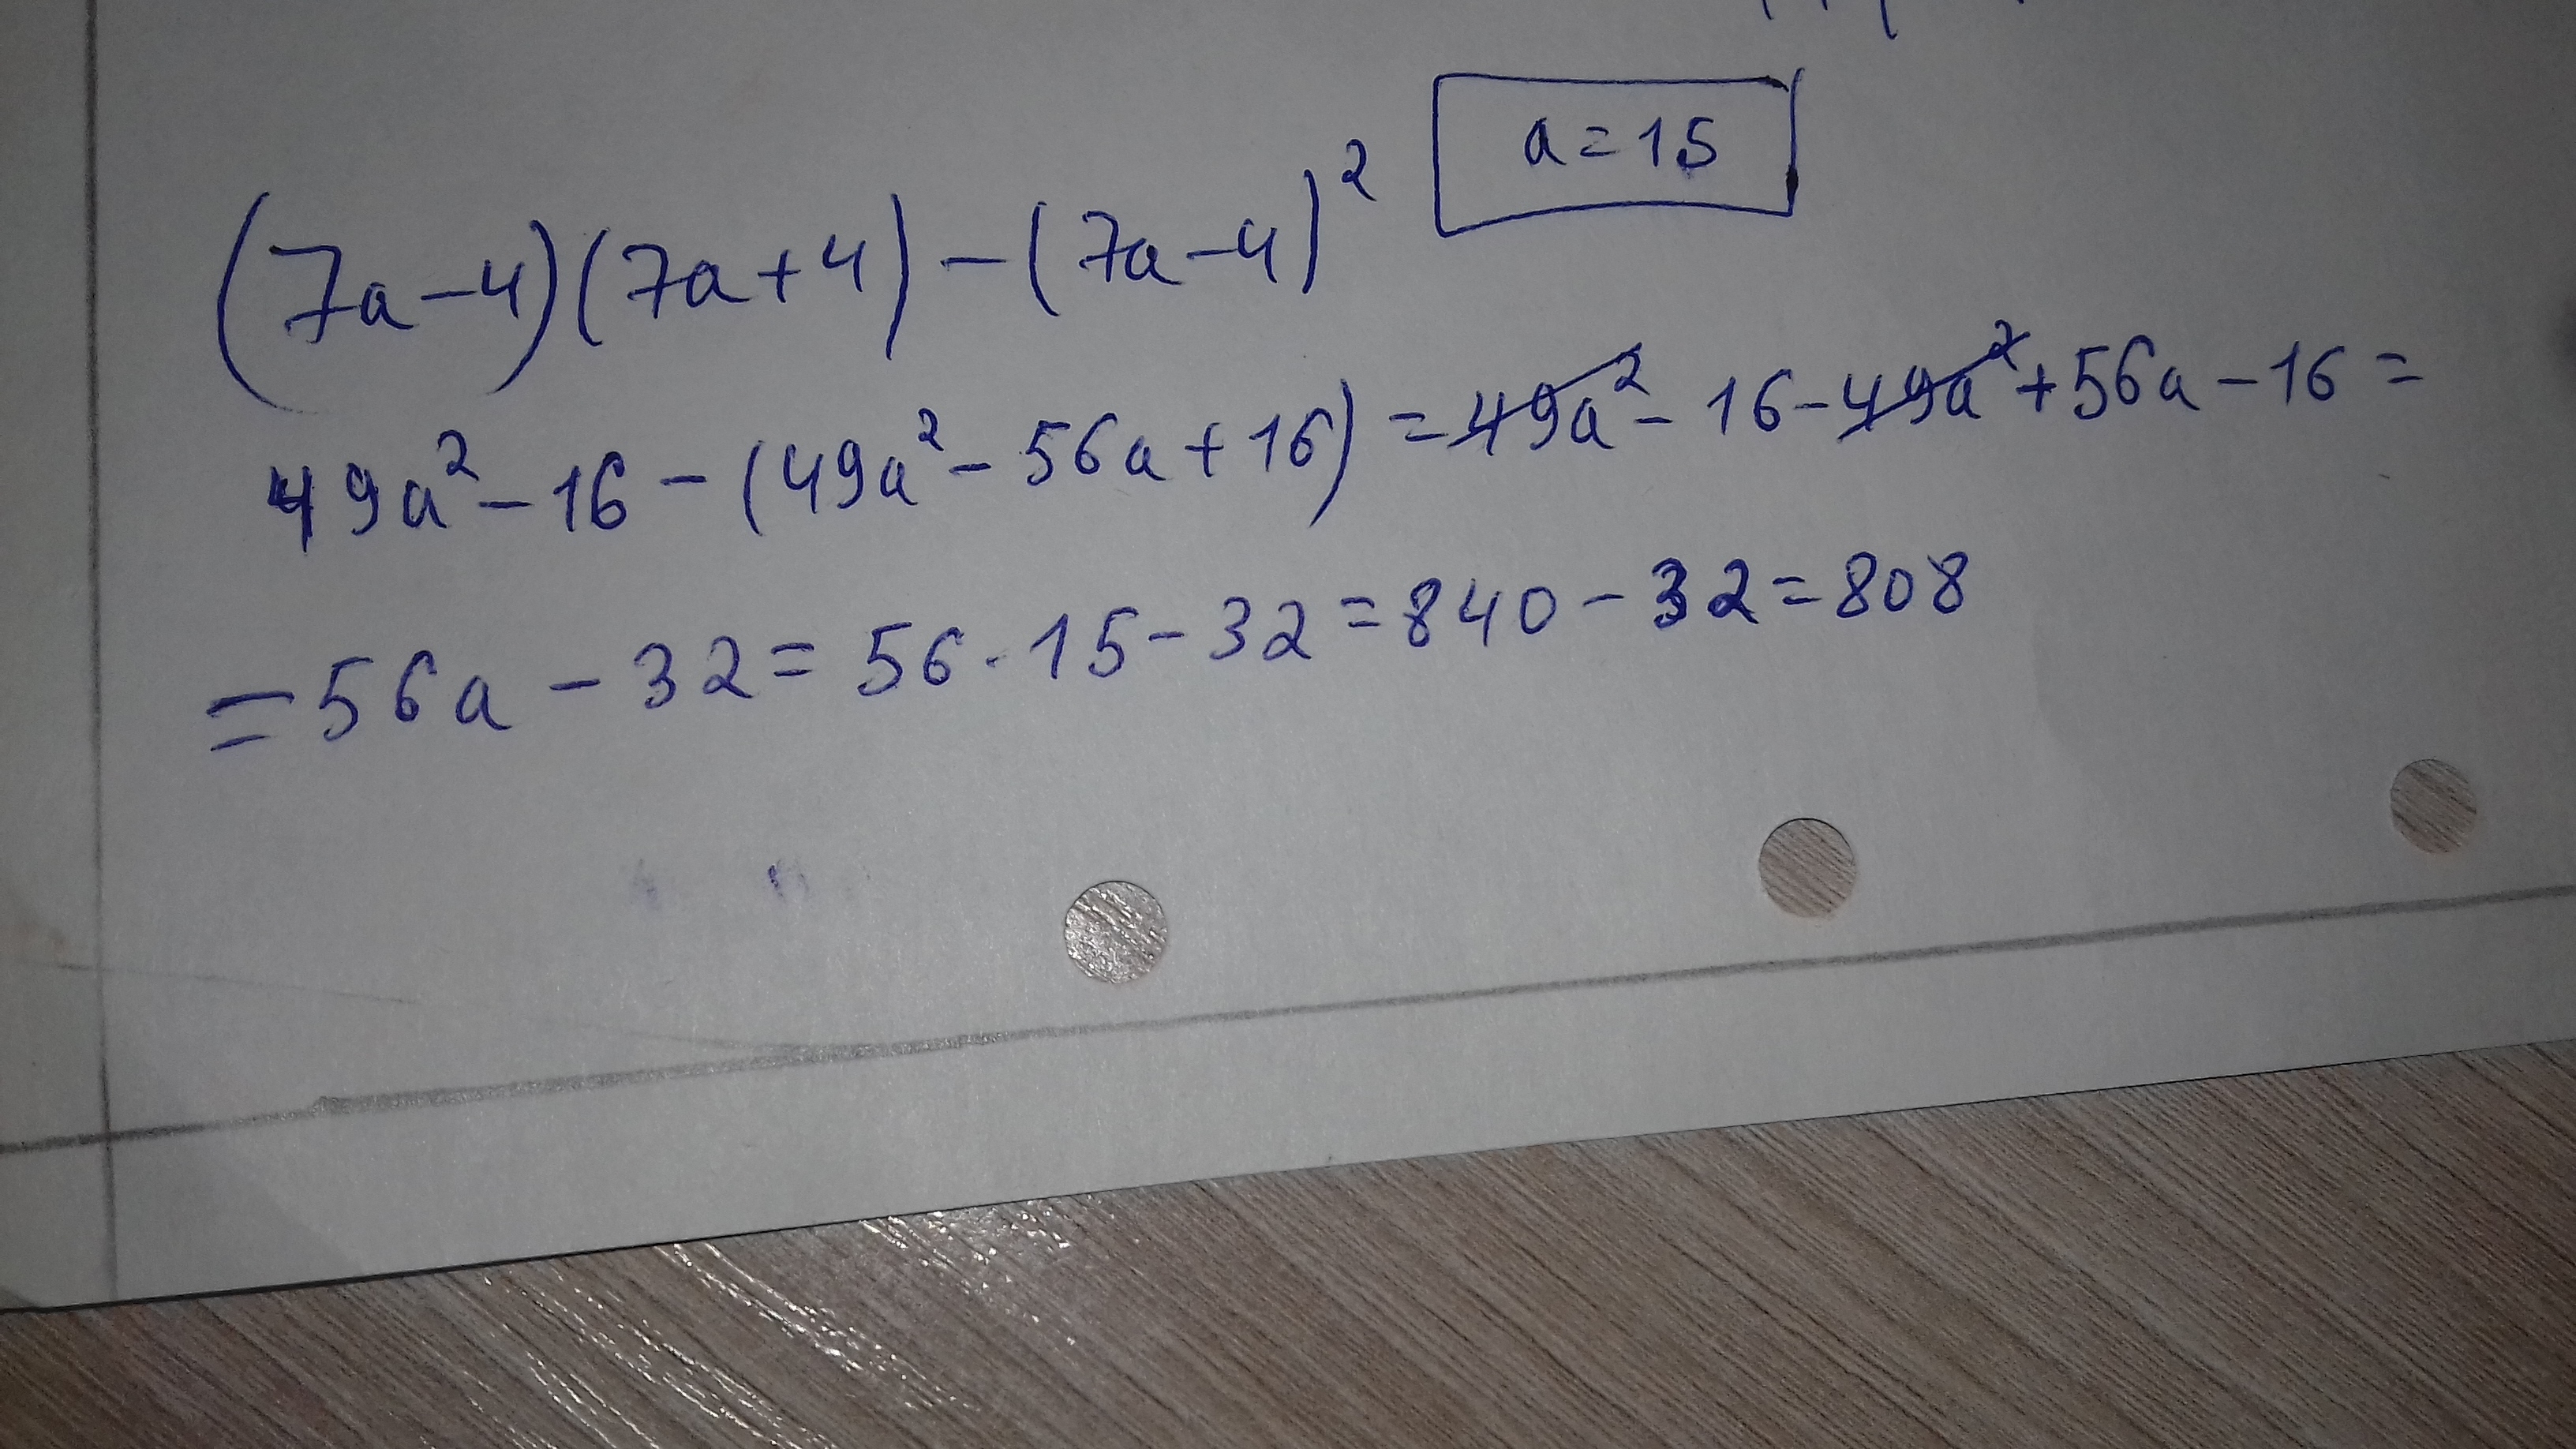 a=15
(7a-4)(7a+4)-(7a-4)²
49a²-16-(49a²-56a+16)=49a²-16-49a²+56a-16=
=56a-32=56·15-32=840-32=808